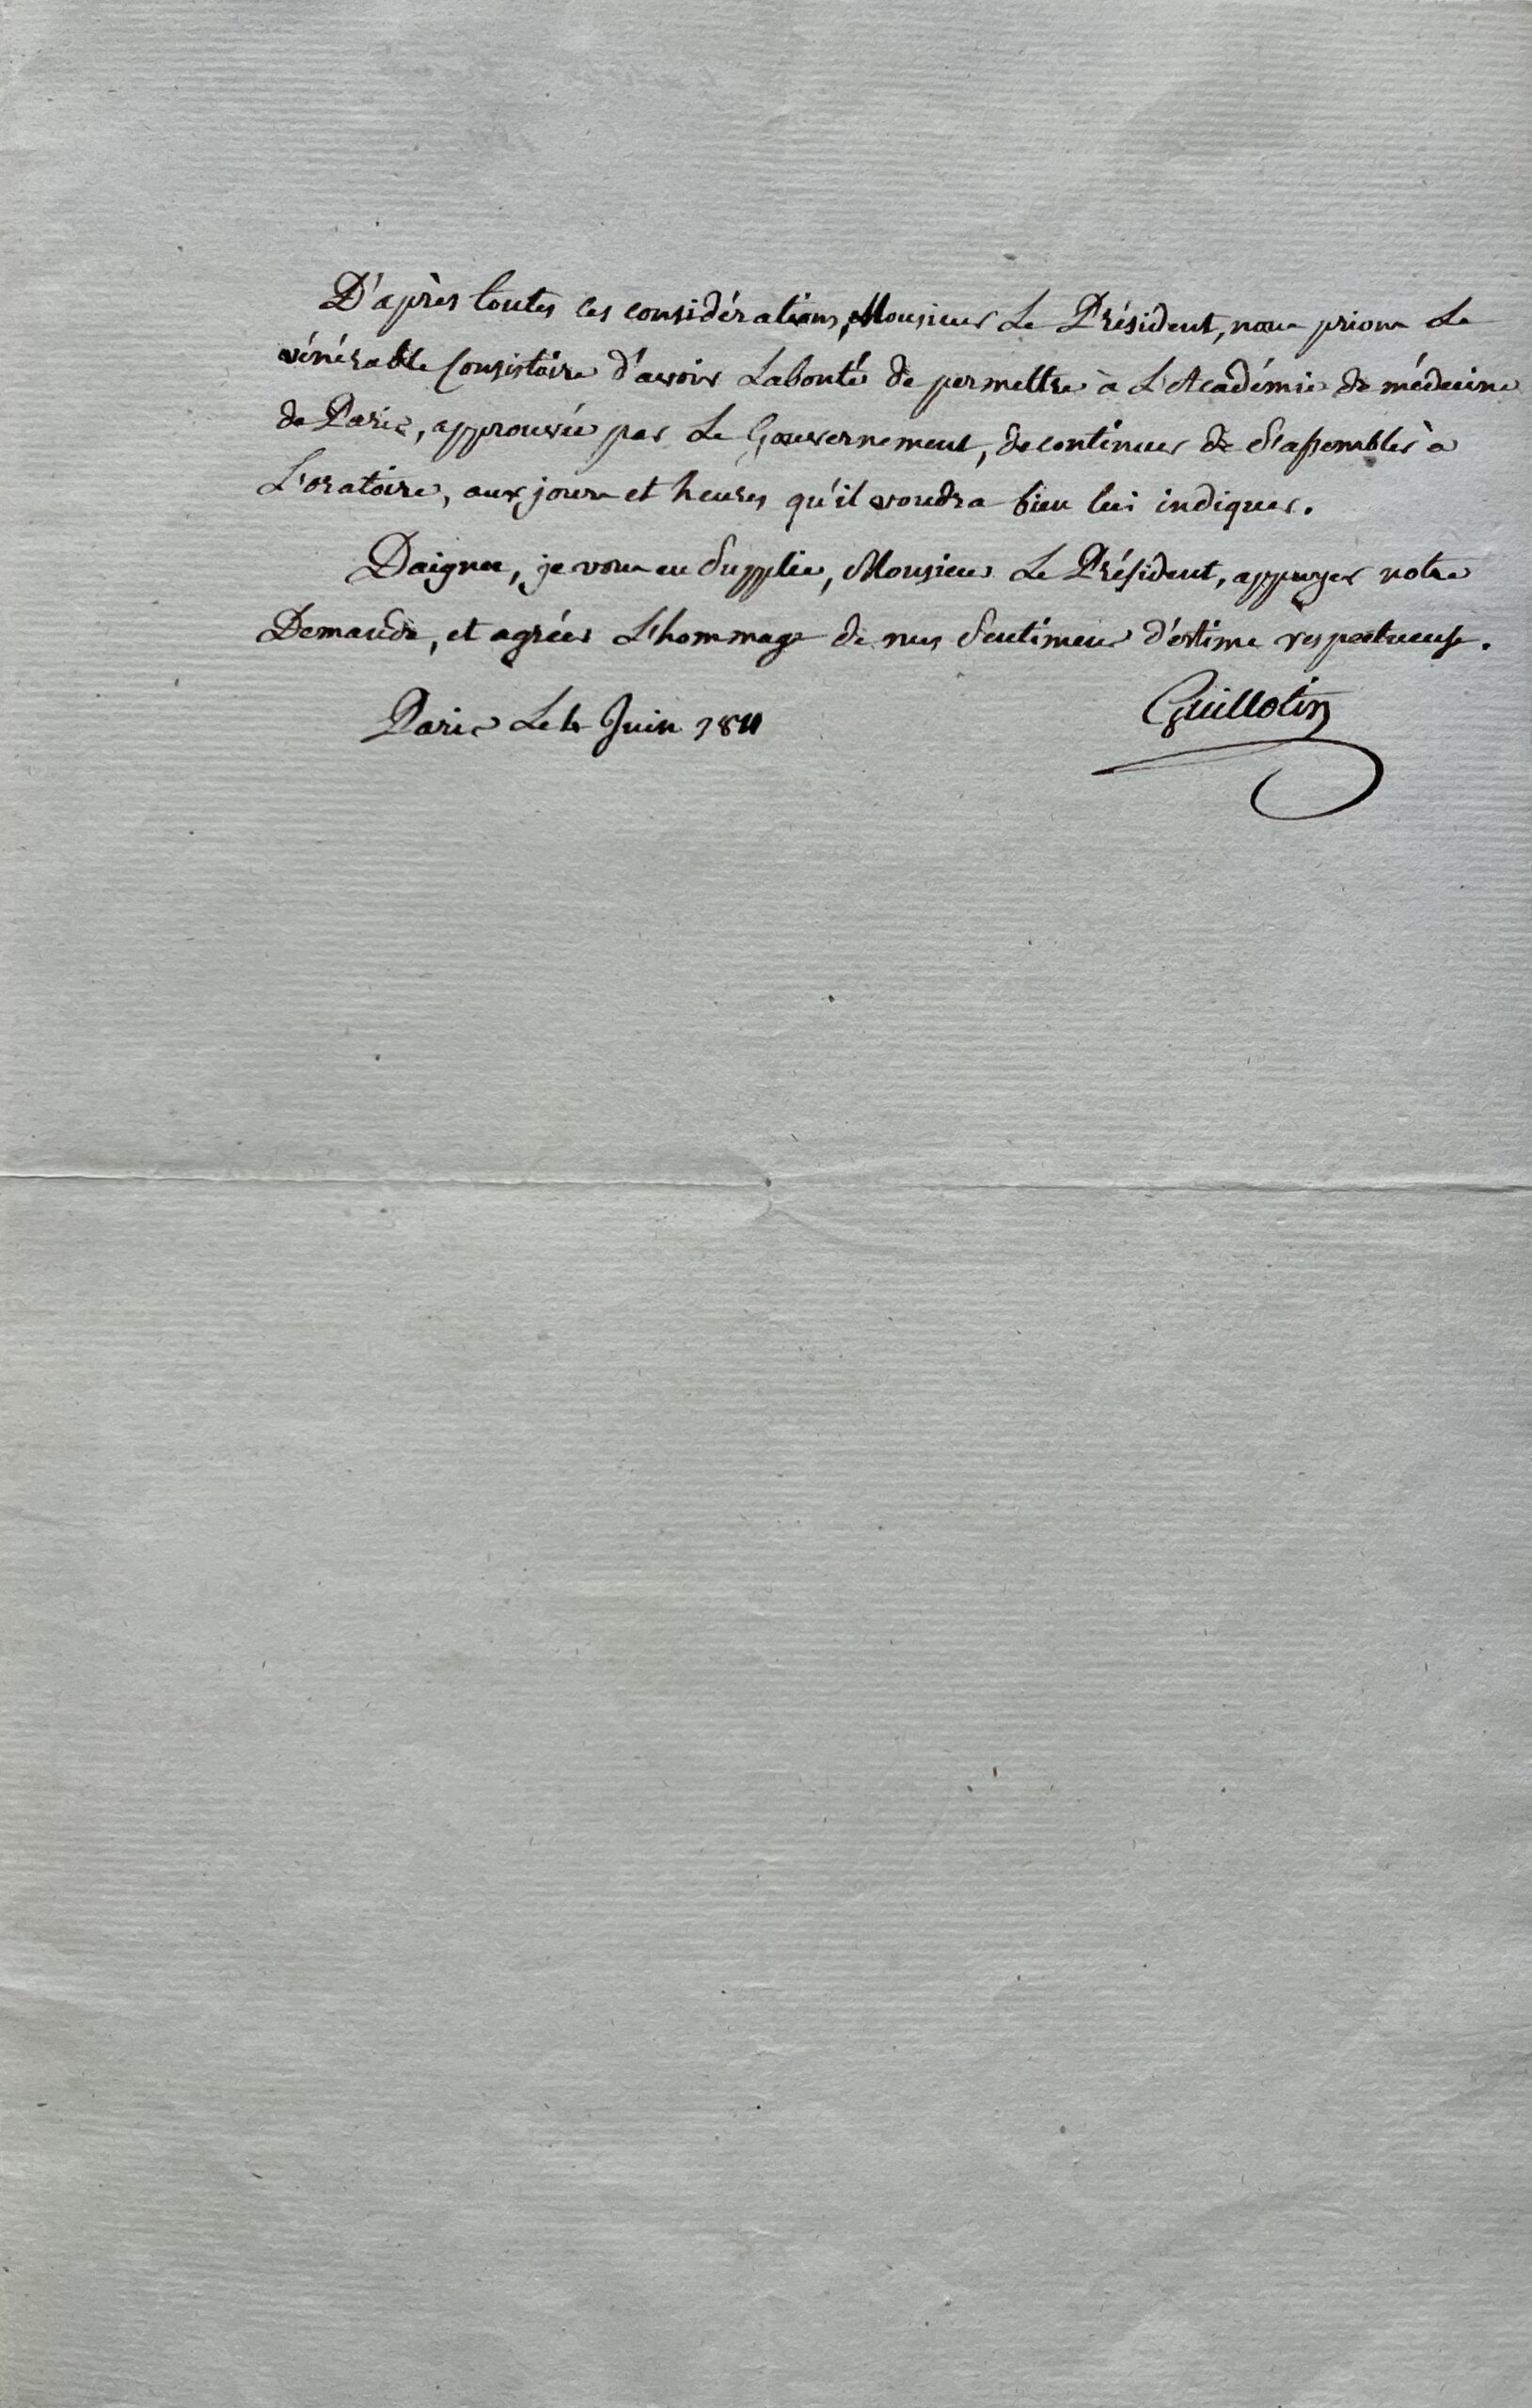 D'après toutes ces considérations, Monsieur Le Président, nous prions Le
vénérable Consistoire d'avoir La bonté de permettre à L'Académie de médecine
de Paris, approuvée par Le Gouvernement, de continuer de S'assembler à
L'oratoire, aux jours et heures qu'il voudra bien lui indiquer.
Daignez, je vous en Supplie, Monsieur Le Président, appuyer notre
Demande, et agréer L'hommage de nos Sentimens d'estime respectueuse.
Paris Le Juin 1811
Guillotin